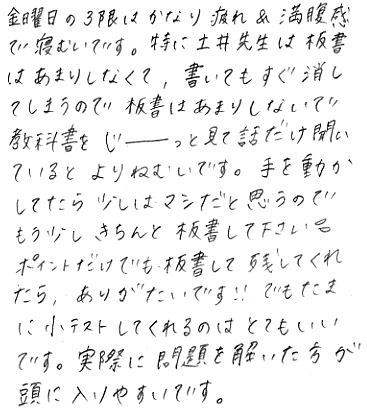 金曜日の3限はかなり疲れ&満腹感
で寝むいです。特に土井先生は板書
はあまりしなくて,書いてもすぐ消し
てしまうので板書はあまりしないで
教科書をじ――っと見て話だけ聞い
ているとよりねむいです。手を動か
してたら少しはマシだと思うので
もう少しきちんと板書して下さい。
ポイントだけでも板書して残してくれ
たら,ありがたいです!!でもたま
に小テストしてくれるのはとてもいい
です。実際に問題を解いた方が
頭に入りやすいです。